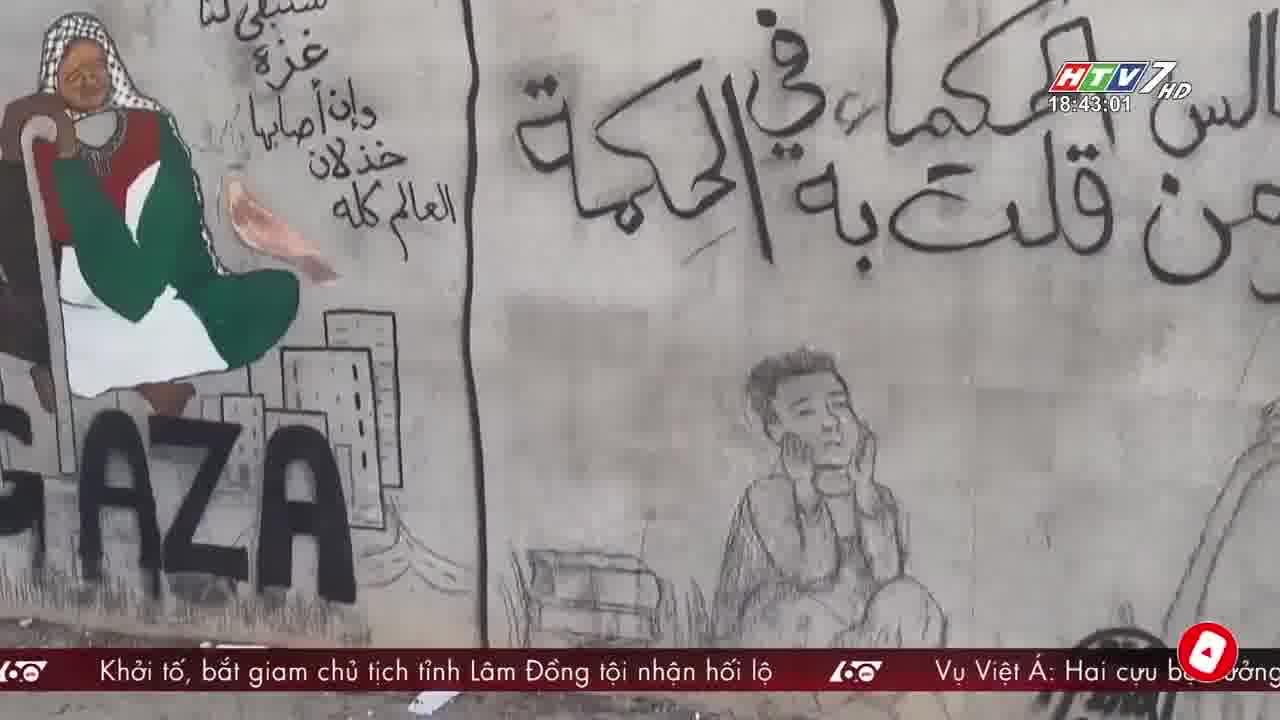 ستبقى لنا
غزة
وإن أصابها
خذلان
العالم كله
GAZA
الحكماء في الحكمة
من قلت به
HTV7 HD
18:43:01
60 Khởi tố, bắt giam chủ tịch tỉnh Lâm Đồng tội nhận hối lộ 60 Vụ Việt Á: Hai cựu